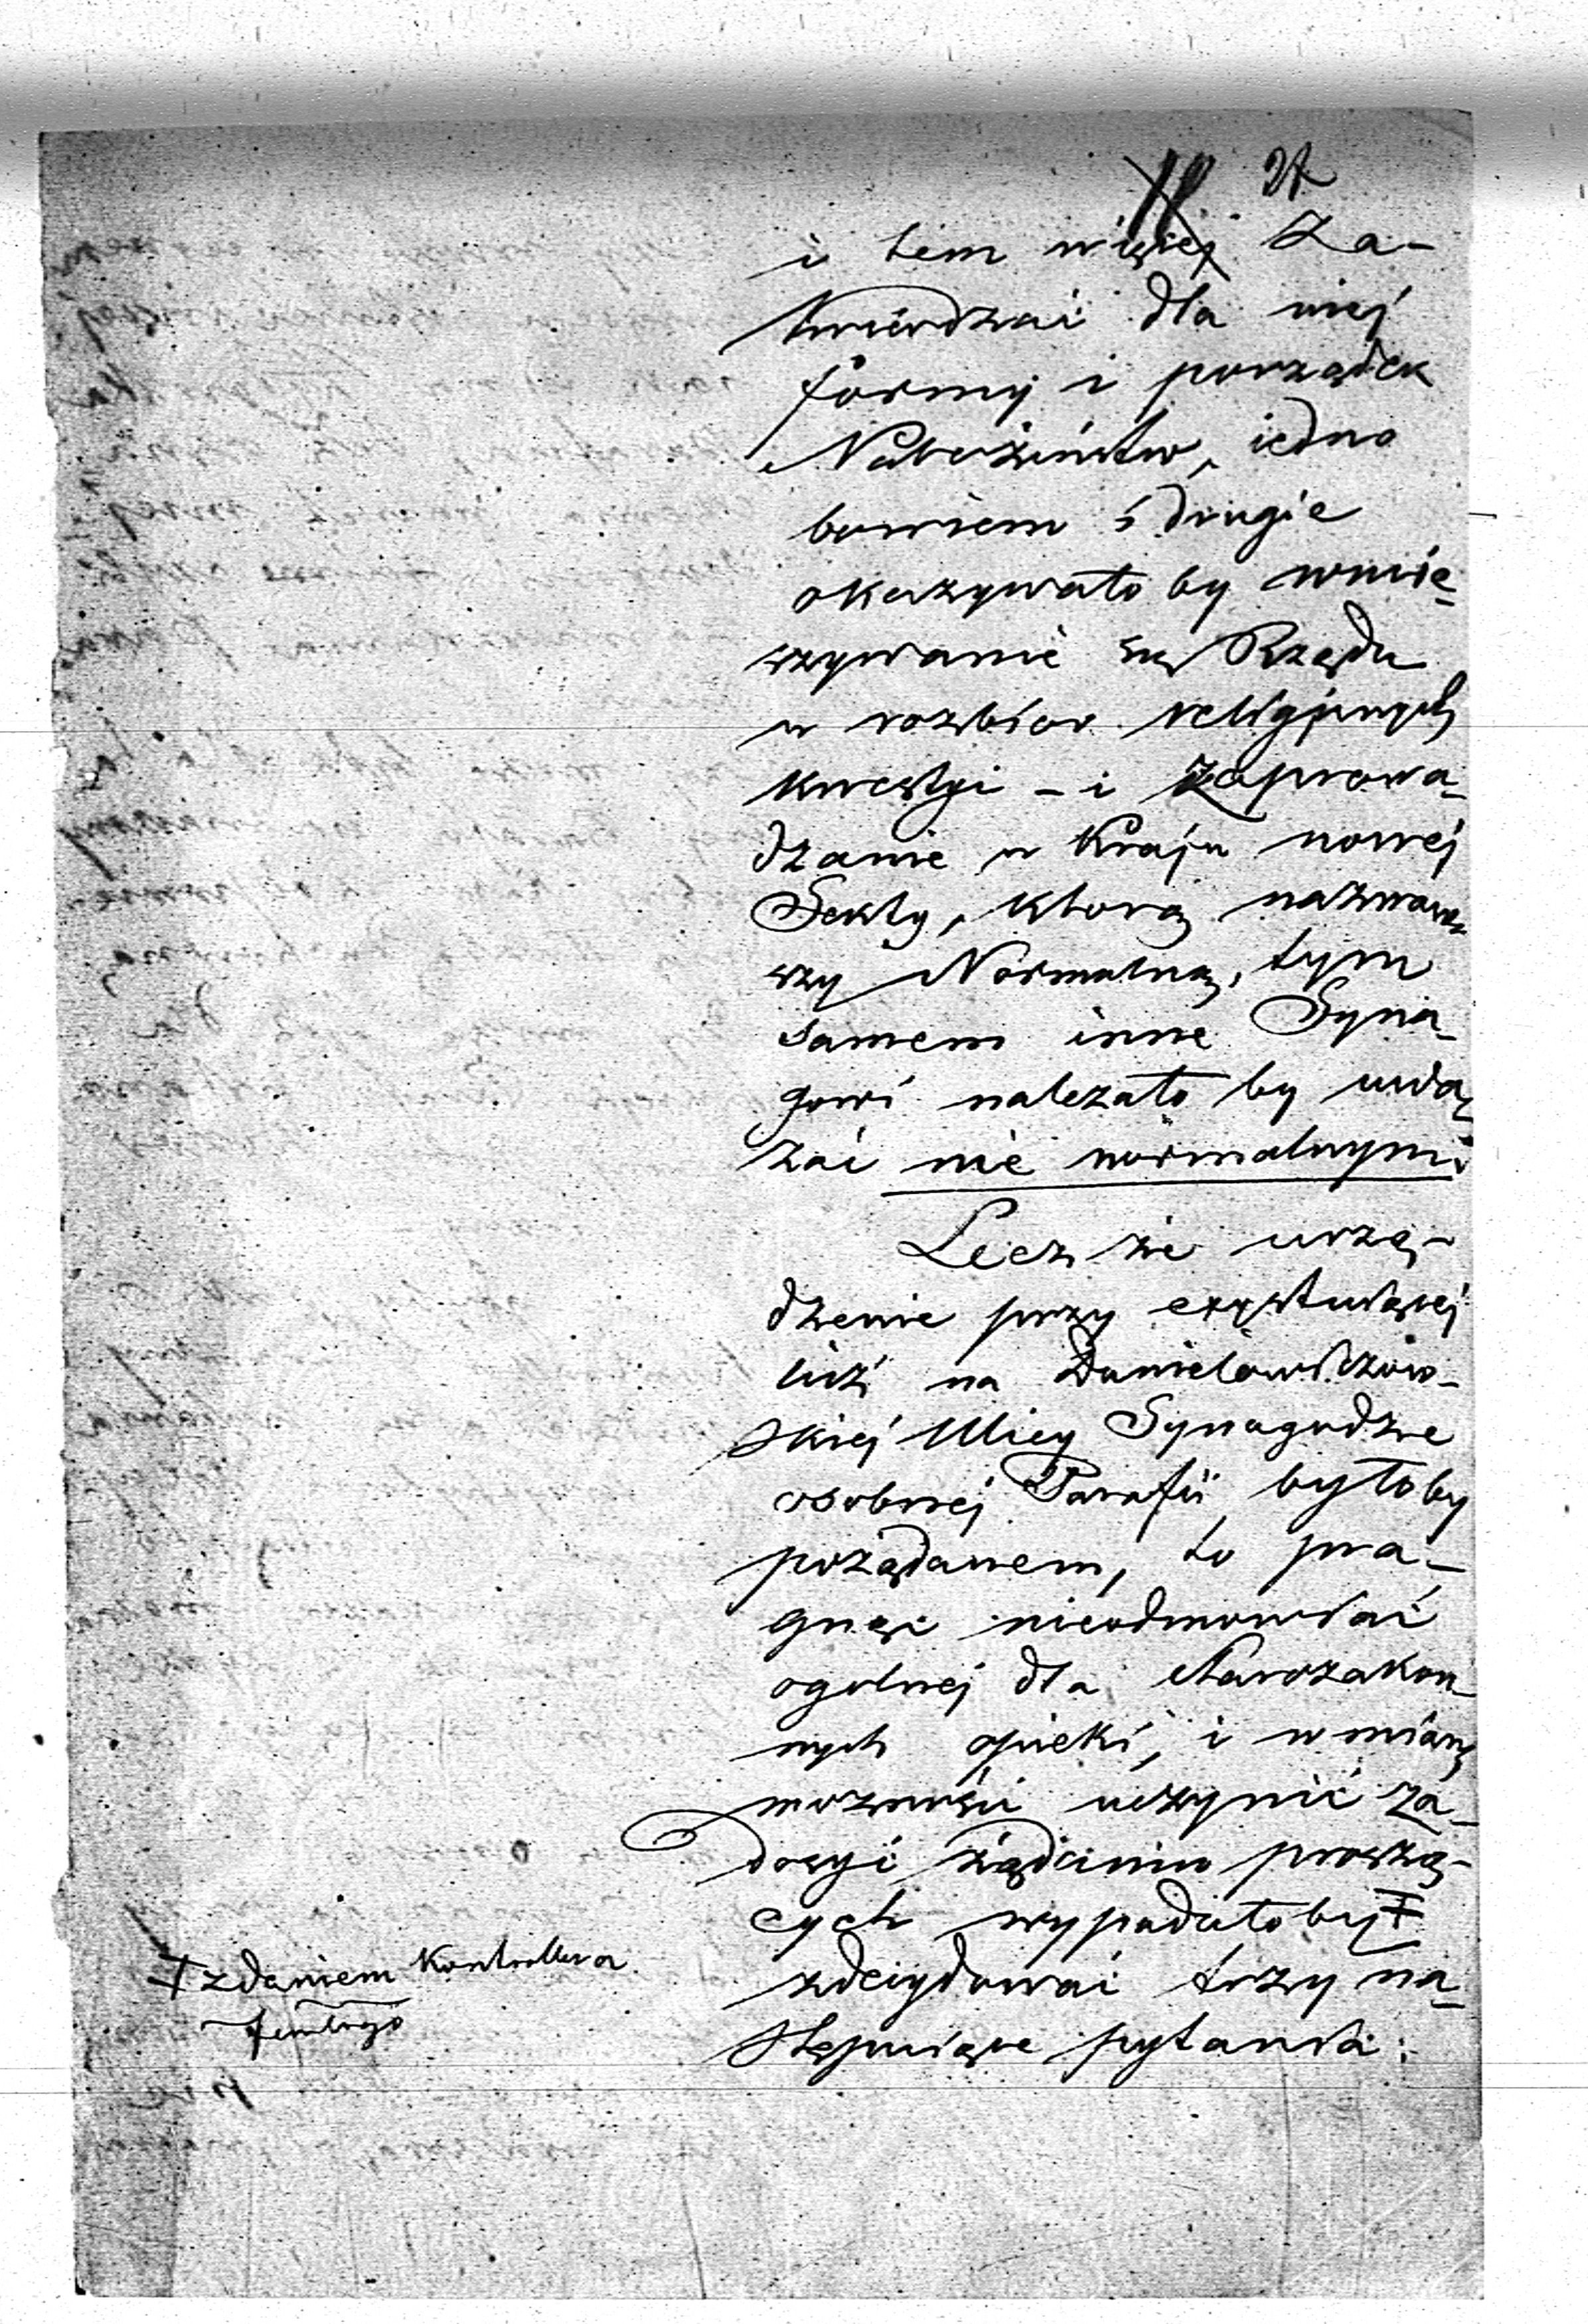 27
i tem więcej Za-
twierdzać dla niej
formy i porządek
Nabożeństw, iedno
bowiem i drugie
okazywało by wmię-
szywanie się Rządu
w rozbior religijnych
kwestyi – i zaprowa-
dzanie w Kraju nowej
Sekty, ktorą nazwaw-
szy Normalną, tym
samem inne Syna-
gowi należało by uwa-
żać nie normalnymi
Lecz że urzą-
dzenie przy exystuiącej
iuż na Danielowiczow-
skiej Ulicy Synagodze
osobnej Parafii byłoby
pożądanem, to pra-
gnąc nieodmowiać
ogolnej dla Starozakon-
nych opieki, i w miarę
możności uczynić za-
dosyć żądaniu proszą-
cych wypadałoby Ŧ
zdecydować trzy na-
stępuiące pytania:
Ŧ zdaniem Kontrollera